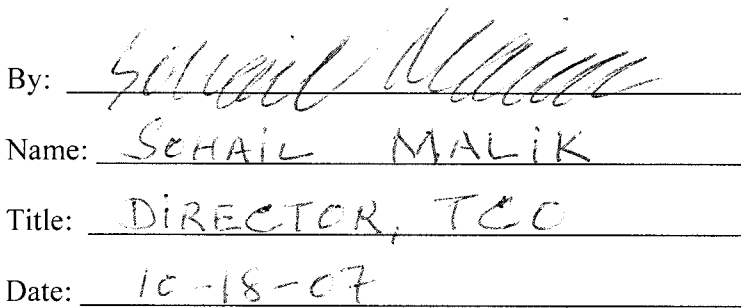 By: Sohail Malik
Name: SOHAIL MALiK
Title: DiRECTOR, TCO
Date: 10-18-07